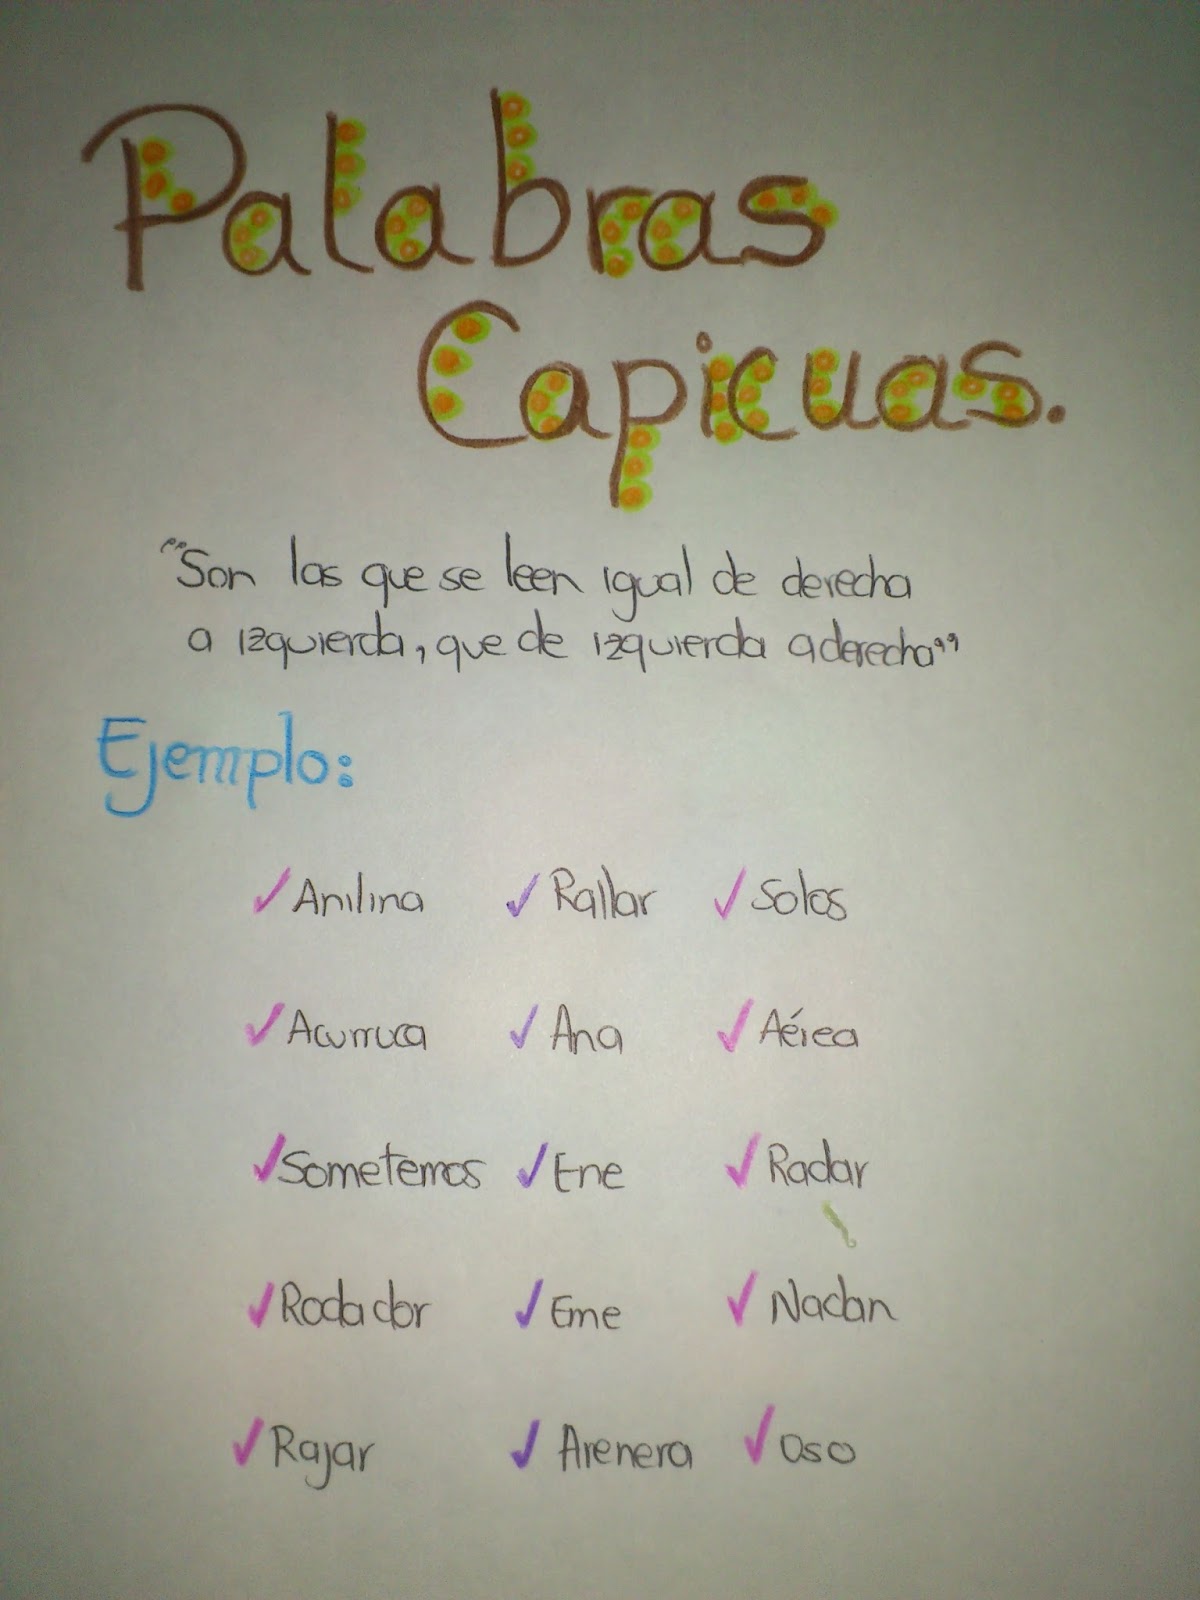 Palabras
Capicuas.
"Son las que se leen igual de derecha
a izquierda, que de izquierda a derecha"
Ejemplo:
✓Anilina ✓Rallar ✓Solos
✓Acurruca ✓Ana ✓Aérea
✓Sometemos ✓Ene ✓Radar
✓Rodador ✓Eme ✓Nadan
✓Rajar ✓Arenera ✓Oso